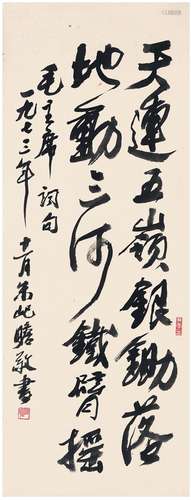 天連五嶺銀鋤落
地動三河鐵臂摇
毛主席詞句
一九七三年十一月
敬書